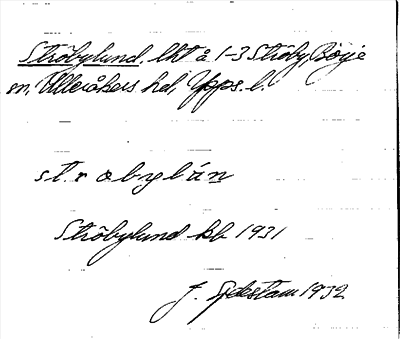 Ströbylund, lht å 1-3 Ströby, Börje
sn, Ulleråkers hd, Upps. l.
st. r ö b y l ú n
Ströbylund kb 1931
J. Sjdestam 1932